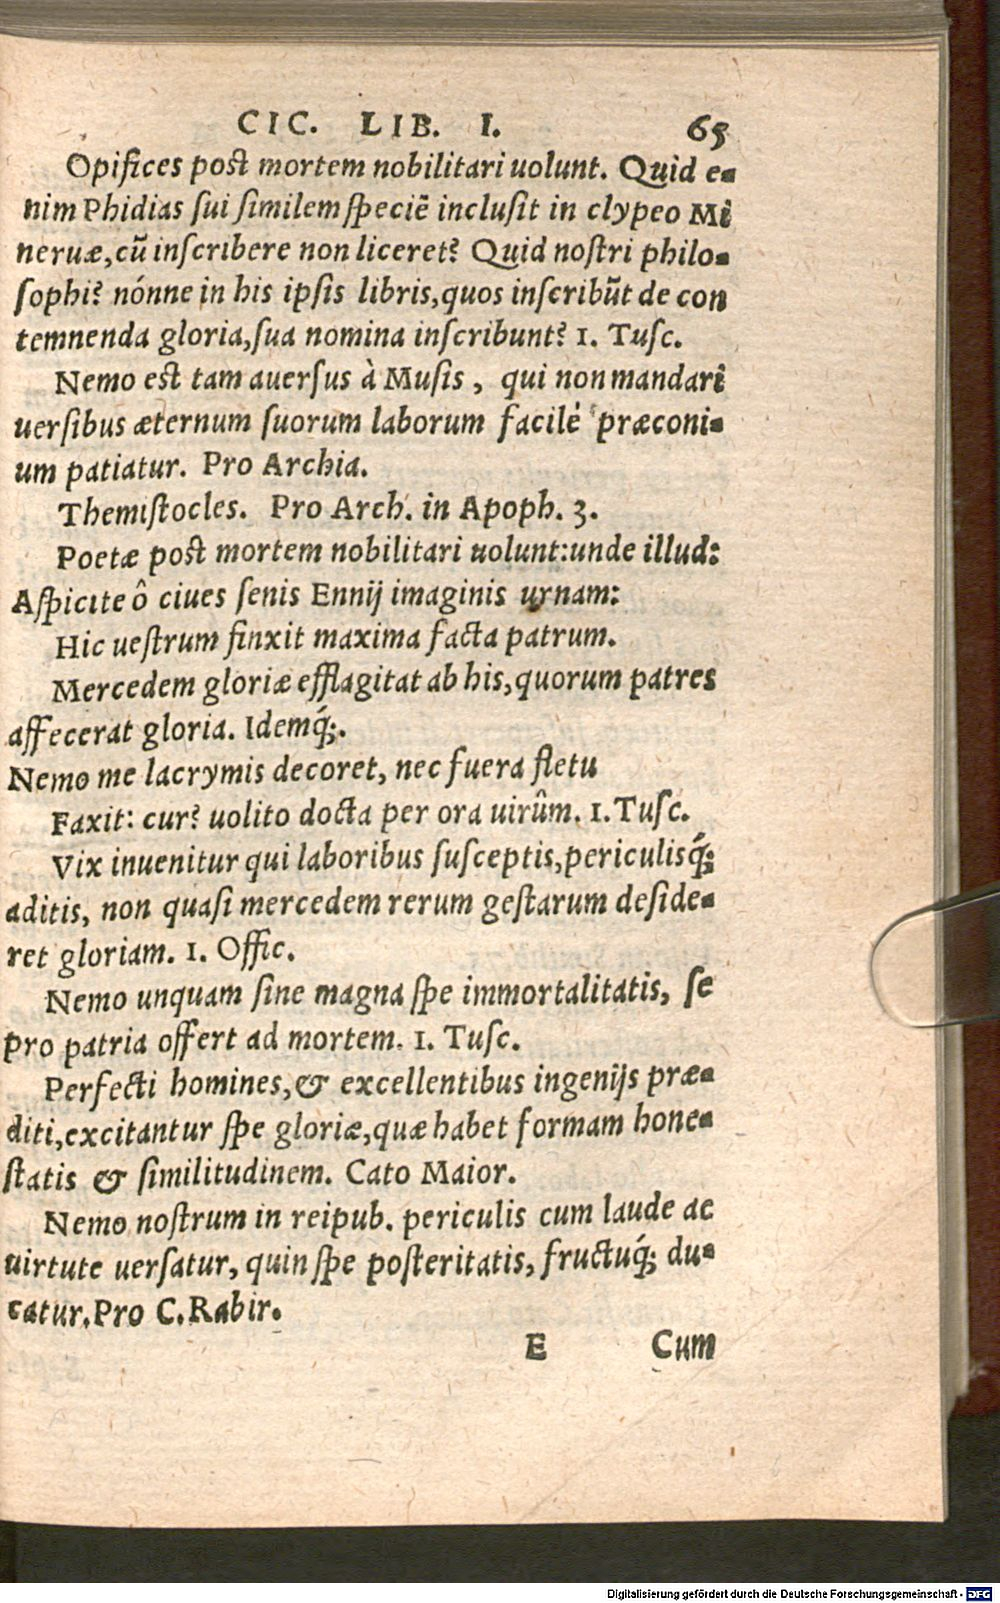 CIC. LIB. I. 65
Opifices post mortem nobilitari uolunt. Quid e-
nim Phidias sui similem speciẽ inclusit in clypeo Mi
neruæ, cũ inscribere non liceret? Quid nostri philo-
sophi? nónne in his ipsis libris, quos inscribũt de con
temnenda gloria, sua nomina inscribunt? 1. Tusc.
Nemo est tam auersus à Musis, qui non mandari
uersibus æternum suorum laborum facilè præconi-
um patiatur. Pro Archia.
Themistocles. Pro Arch. in Apoph. 3.
Poetæ post mortem nobilitari uolunt: unde illud:
Aspicite ô ciues senis Ennij imaginis urnam:
Hic uestrum finxit maxima facta patrum.
Mercedem gloriæ efflagitat ab his, quorum patres
affecerat gloria. Idemq́;.
Nemo me lacrymis decoret, nec fuera fletu
Faxit: cur? uolito docta per ora uirûm. 1. Tusc.
Vix inuenitur qui laboribus susceptis, periculisq́;
aditis, non quasi mercedem rerum gestarum deside-
ret gloriam. 1. Offic.
Nemo unquam sine magna spe immortalitatis, se
pro patria offert ad mortem. 1. Tusc.
Perfecti homines, & excellentibus ingenijs præ-
diti, excitantur spe gloriæ, quæ habet formam hone-
statis & similitudinem. Cato Maior.
Nemo nostrum in reipub. periculis cum laude ac
uirtute uersatur, quin spe posteritatis, fructuq́; du-
catur. Pro C. Rabir.
E Cum
Digitalisierung gefördert durch die Deutsche Forschungsgemeinschaft - DFG